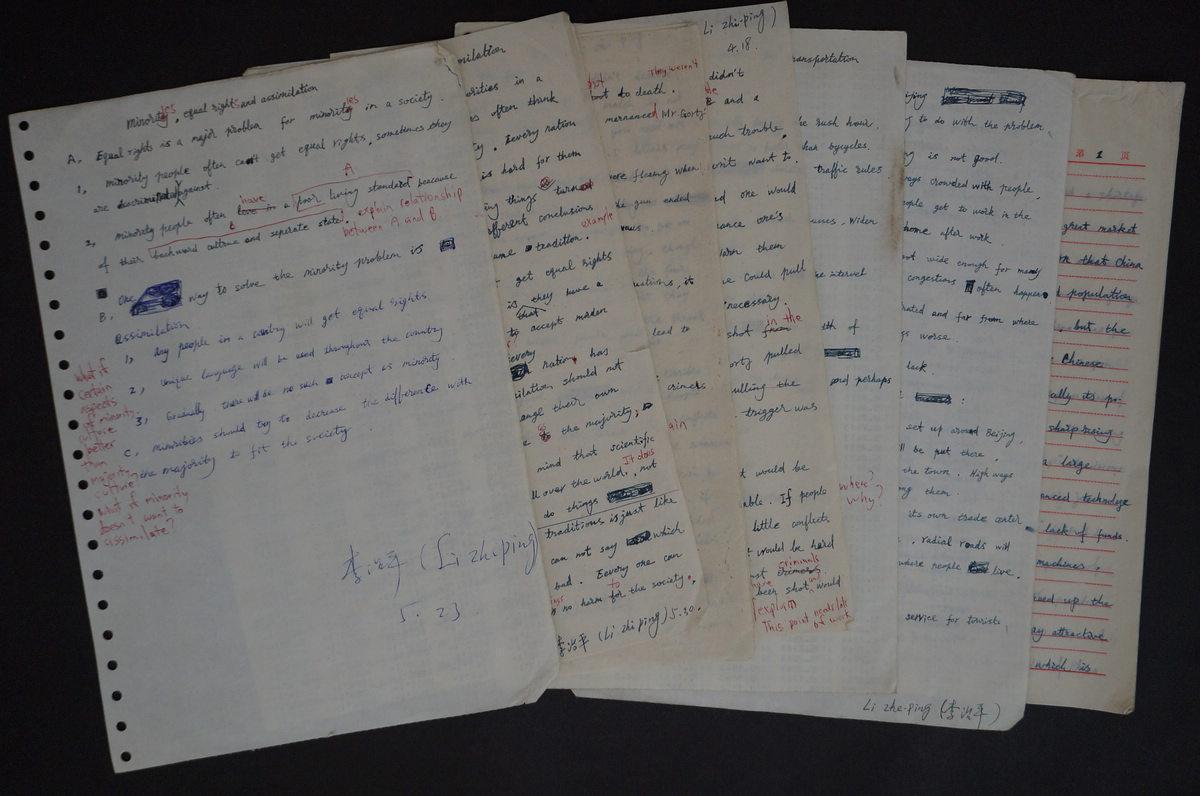 minorityies, equal rights and assimilation
A. Equal rights is a major problem for minorityies in a society.
1, minority people often can't get equal rights, sometimes they
are discriminated against.
A
have
2, minority people often live in a poor living standard beacause
B
of their backward culture and seperate state.
explain relationship
between A and B
B. One way to solve the minority problem is
assimilation
1, Any people in a country will get equal rights
2, unique language will be used throughout the country
3, Gradually there will be no such concept as minority.
C. minorities should try to decrease the difference with
the majority to fit the society.
what if
certain
aspects
of minority
culture
better
than
majority
culture?
what if minority
doesn't want to
assimilate?
李治平 (Li zhi-ping)
5.23
milation
orities in a
s often think
Eevery nation
is hard for them
ing things turned
fferent conclusions
ame tradition.
get equal rights
is, they have a
that
to accept moden
Every
nation has
ilation, should not
ange their own
the majority;
mind that scientific
ll over the world. It does not
do things
traditions is just like
can not say which
bad. Eevery one can
to
s no harm for the society.
李治平 (Li zhi-ping) 5.30.
They weren't
to death.
Mr Gortz
example
were fleeing when
gun ended
uations, it
lead to
crimers
ain
Li zhi-ping)
4.18.
didn't
and a
uch trouble.
n't want to.
d one would
ance one's
arn them
e could pull
necessary.
in the
shot from
pulled
ulling the
trigger was
t would be
able. If people
little conflects
t would be hard
criminals
crimers
beer shot would
explain
This point needs lots
of work
where?
why?
ansportation
he rush hour.
bycycles.
traffic rules
widen
he intervel
th of
and perhaps
ijing
to do with the problem
y is not good.
ays crowded with people,
eople get to work in the
home after work
not wide enough for many
congestions often happen
ated and far from where
gs worse.
lack.
set up around Beijing,
ll be put there,
the town. High ways
ng them.
its own trade center
, radial roads will
where people live.
service for tourists
Li zhe-ping (李治平)
第 1 页
great market
on that China
population
but the
Chinese
ally its po-
sharp rising
a large
anced technologe
lack of funds.
machines,
eed up the
ay attractive
which is